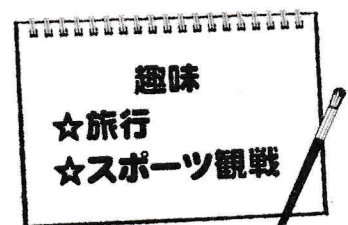 趣味
☆旅行
☆スポーツ観戦